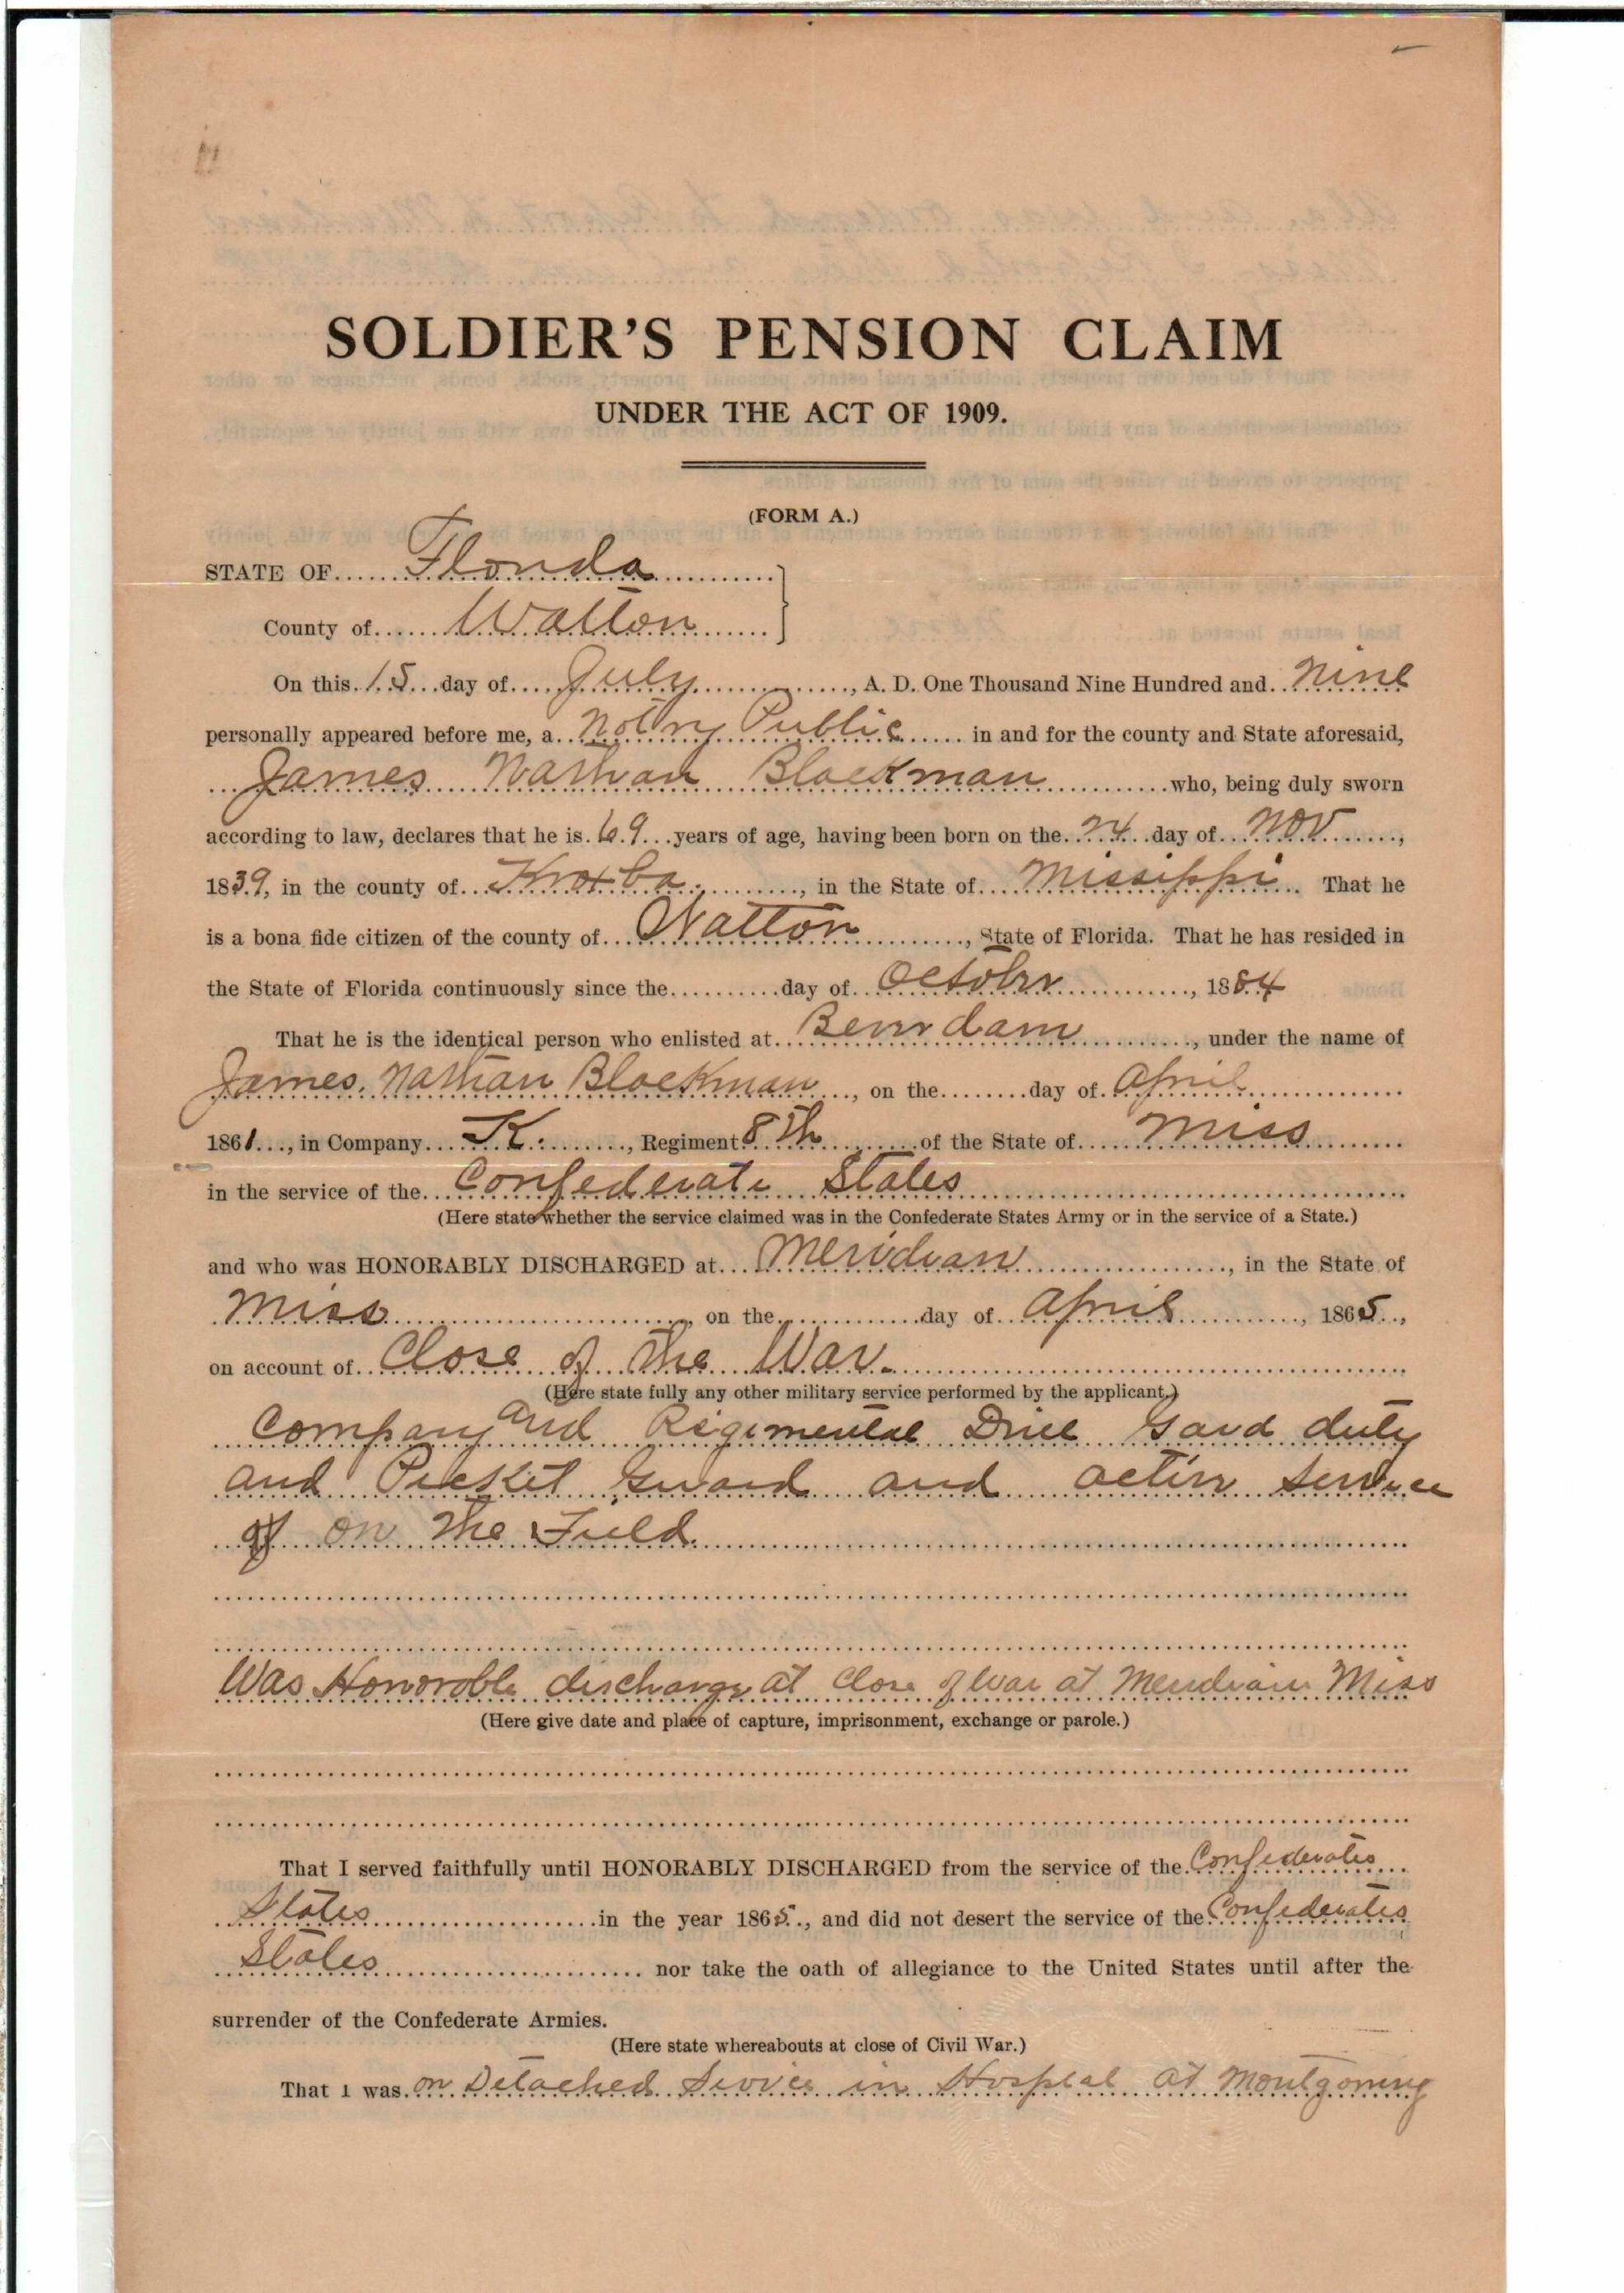 SOLDIER'S PENSION CLAIM
UNDER THE ACT OF 1909.
(FORM A.)
STATE OF Florida
County of Walton
On this 15 day of July, A. D. One Thousand Nine Hundred and Nine
personally appeared before me, a Notry Public in and for the county and State aforesaid,
James Nathan Blackman who, being duly sworn
according to law, declares that he is 69 years of age, having been born on the 24 day of Nov,
1839, in the county of Knoxba, in the State of Missippi. That he
is a bona fide citizen of the county of Walton, State of Florida. That he has resided in
the State of Florida continuously since the day of Octobr, 1884
That he is the identical person who enlisted at, under the name of
James Nathan Blackman, on the day of April
1861, in Company K., Regiment 8th of the State of Miss
in the service of the Confederate States
(Here state whether the service claimed was in the Confederate States Army or in the service of a State.)
and who was HONORABLY DISCHARGED at Meridian, in the State of
Miss, on the day of April, 1865,
on account of Close of the War.
(Here state fully any other military service performed by the applicant.)
Company and Regimental Drill Gard duty
and Picket Guard and active service
of on the Field.
Was Honoroble discharge at Close of War at Meridian Miss
(Here give date and place of capture, imprisonment, exchange or parole.)
That I served faithfully until HONORABLY DISCHARGED from the service of the Confederates
States in the year 1865, and did not desert the service of the Confederates
States nor take the oath of allegiance to the United States until after the
surrender of the Confederate Armies.
(Here state whereabouts at close of Civil War.)
That I was on Detached Service in Hospital at Montgomery